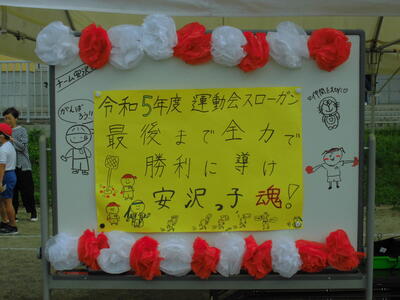 がんばろう
チーム安沢
令和5年度 運動会スローガン
最後まで全力で
勝利に導け
安沢っ子魂!
がんばろう!!